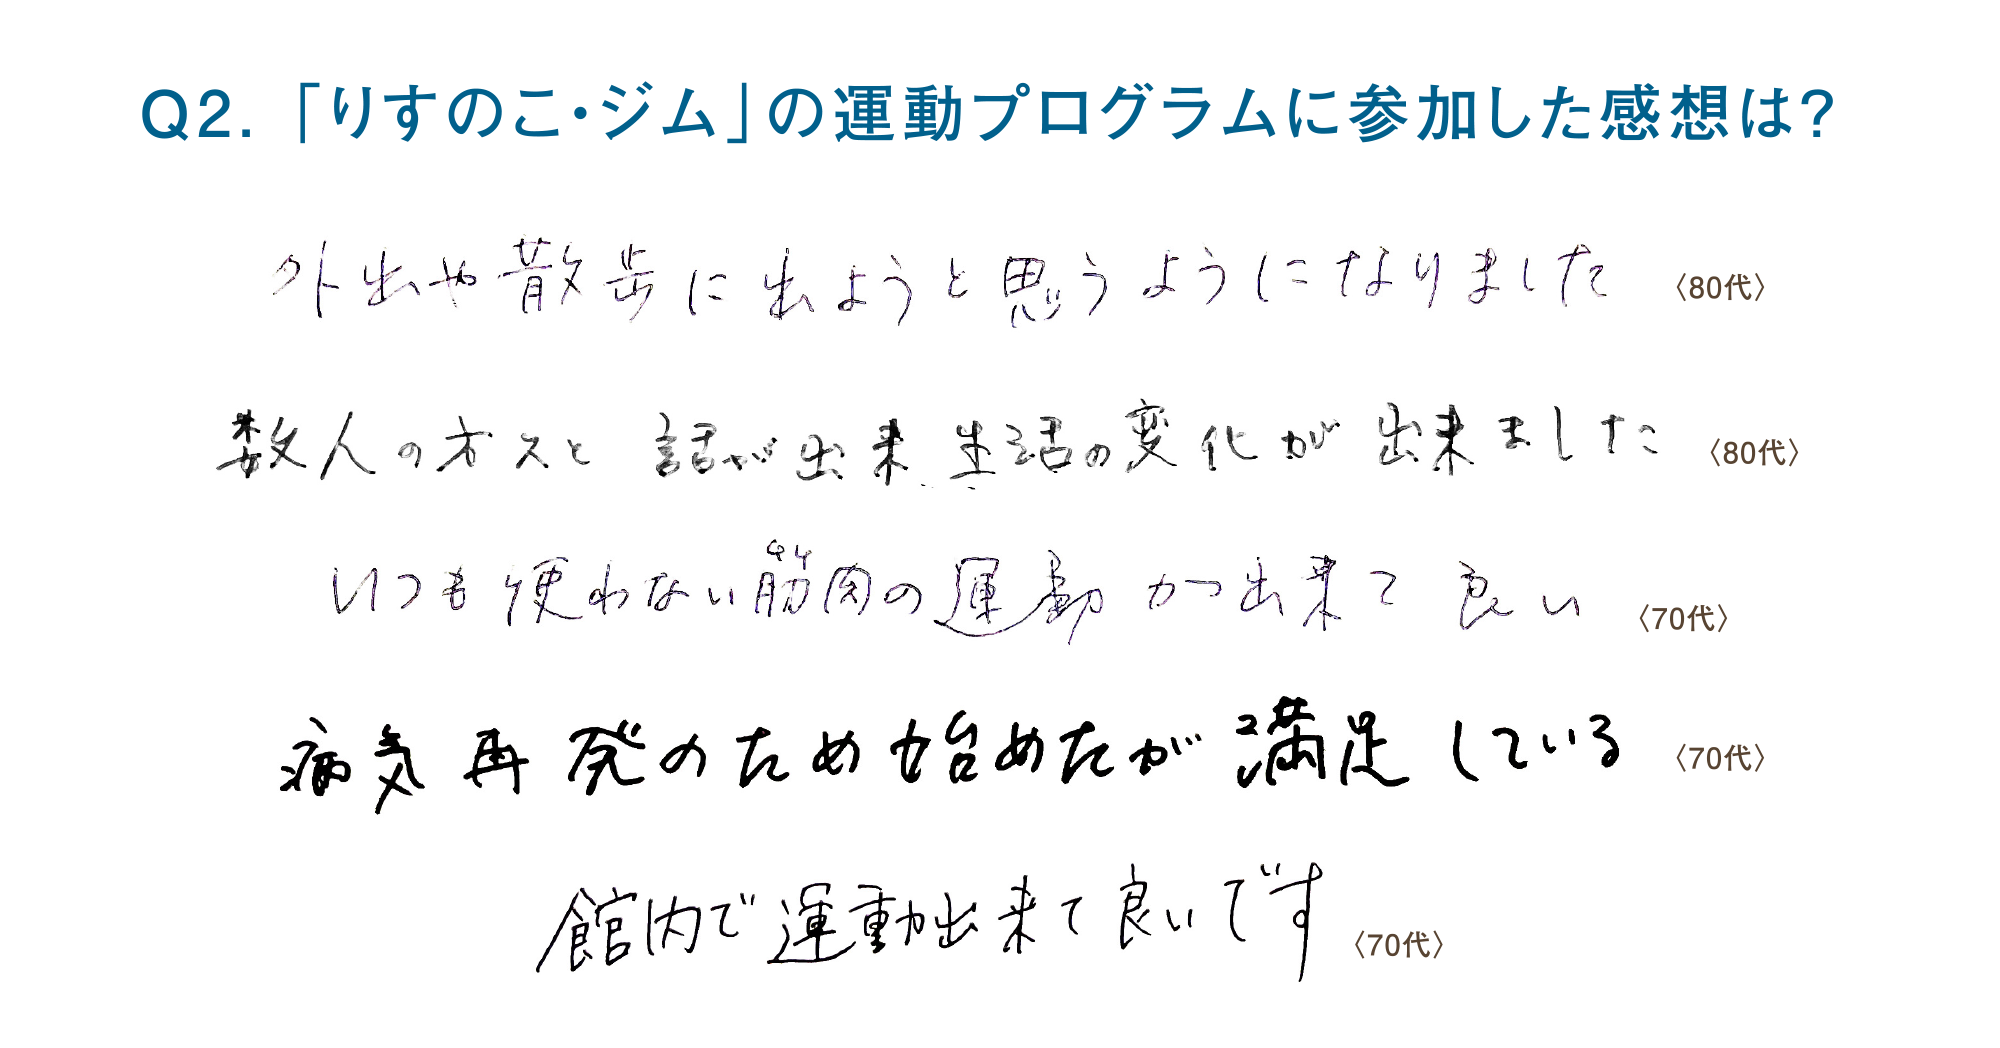 Q2.「りすのこ・ジム」の運動プログラムに参加した感想は?
外出や散歩に出ようと思うようになりました〈80代〉
数人の方々と話が出来、生活の変化が出来ました〈80代〉
いつも使わない筋肉の運動が出来て良い〈70代〉
病気再発のため始めたが満足している〈70代〉
館内で運動出来て良いです〈70代〉